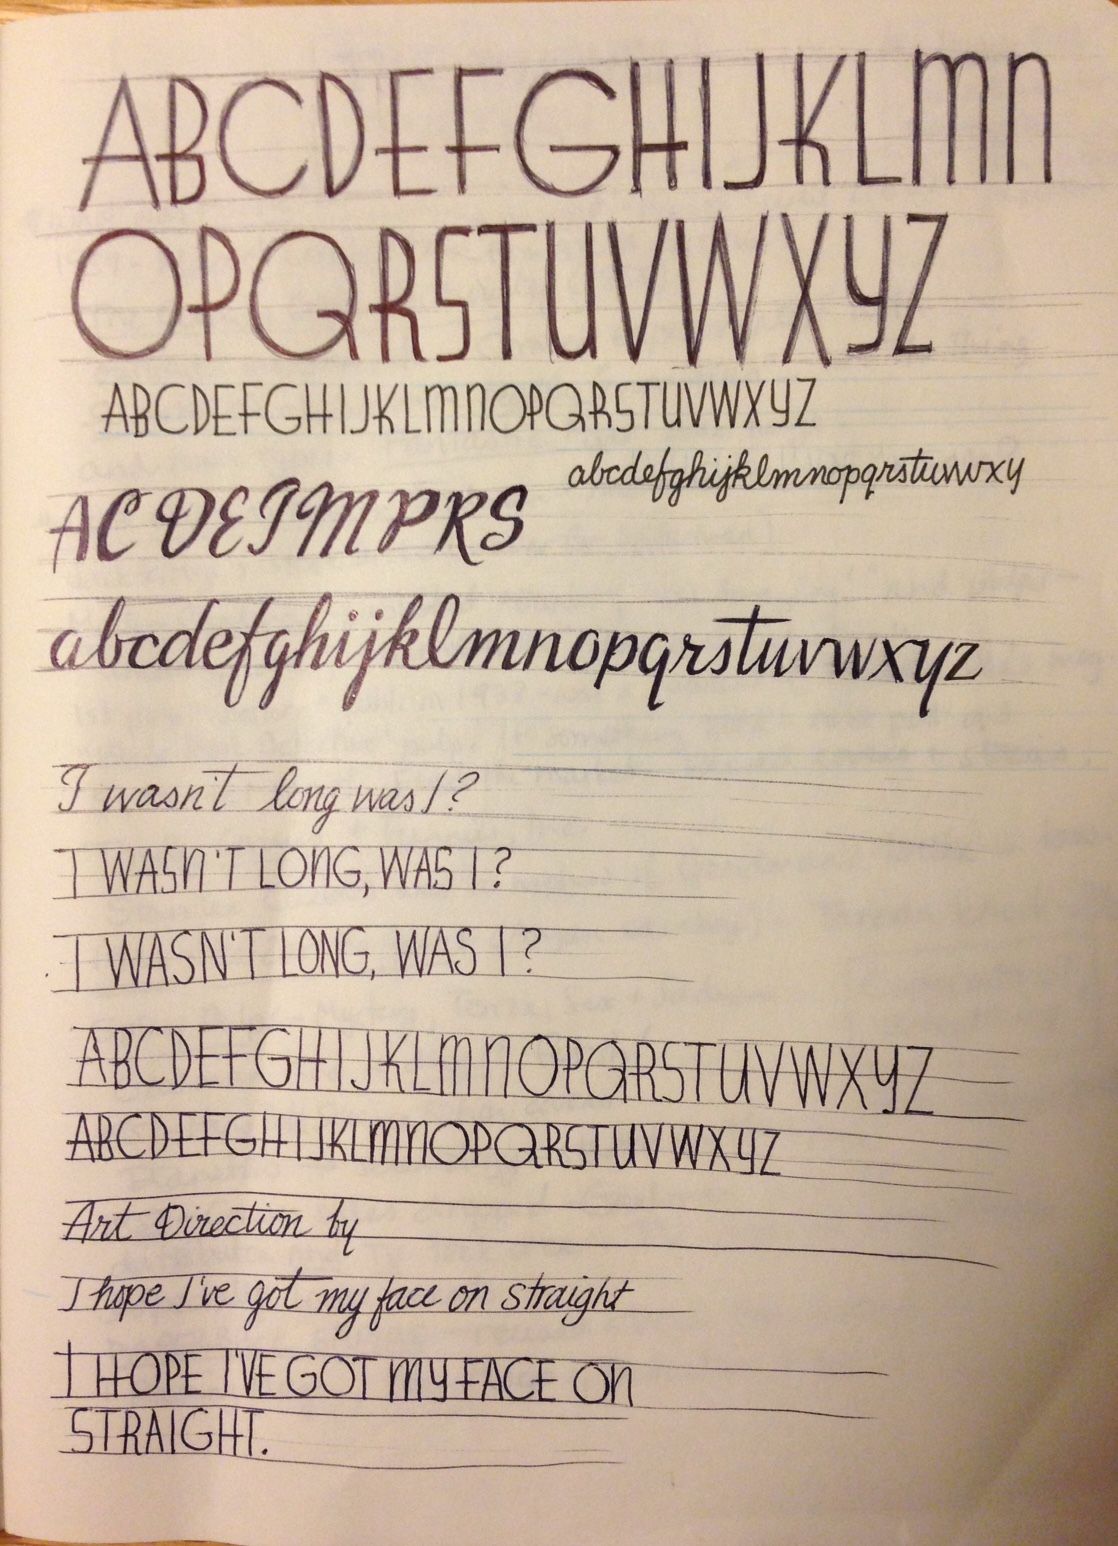 ABCDEFGHIJKLmn
OPQRSTUVWXYZ
ABCDEFGHIJKLmnOPQRSTUVWXYZ
abcdefghijklmnopqrstuvwxy
ACDEIMPRS
abcdefghijklmnopqrstuvwxyz
I wasn't long was I?
I WASn'T LOnG, WAS I?
I WASN'T LONG, WAS I?
ABCDEFGHIJKLmnOPQRSTUVWXYZ
ABCDEFGHIJKLmnOPQRSTUVWXYZ
Art Direction by
I hope I've got my face on straight
I HOPE I'VE GOT mY FACE On
STRAIGHT.